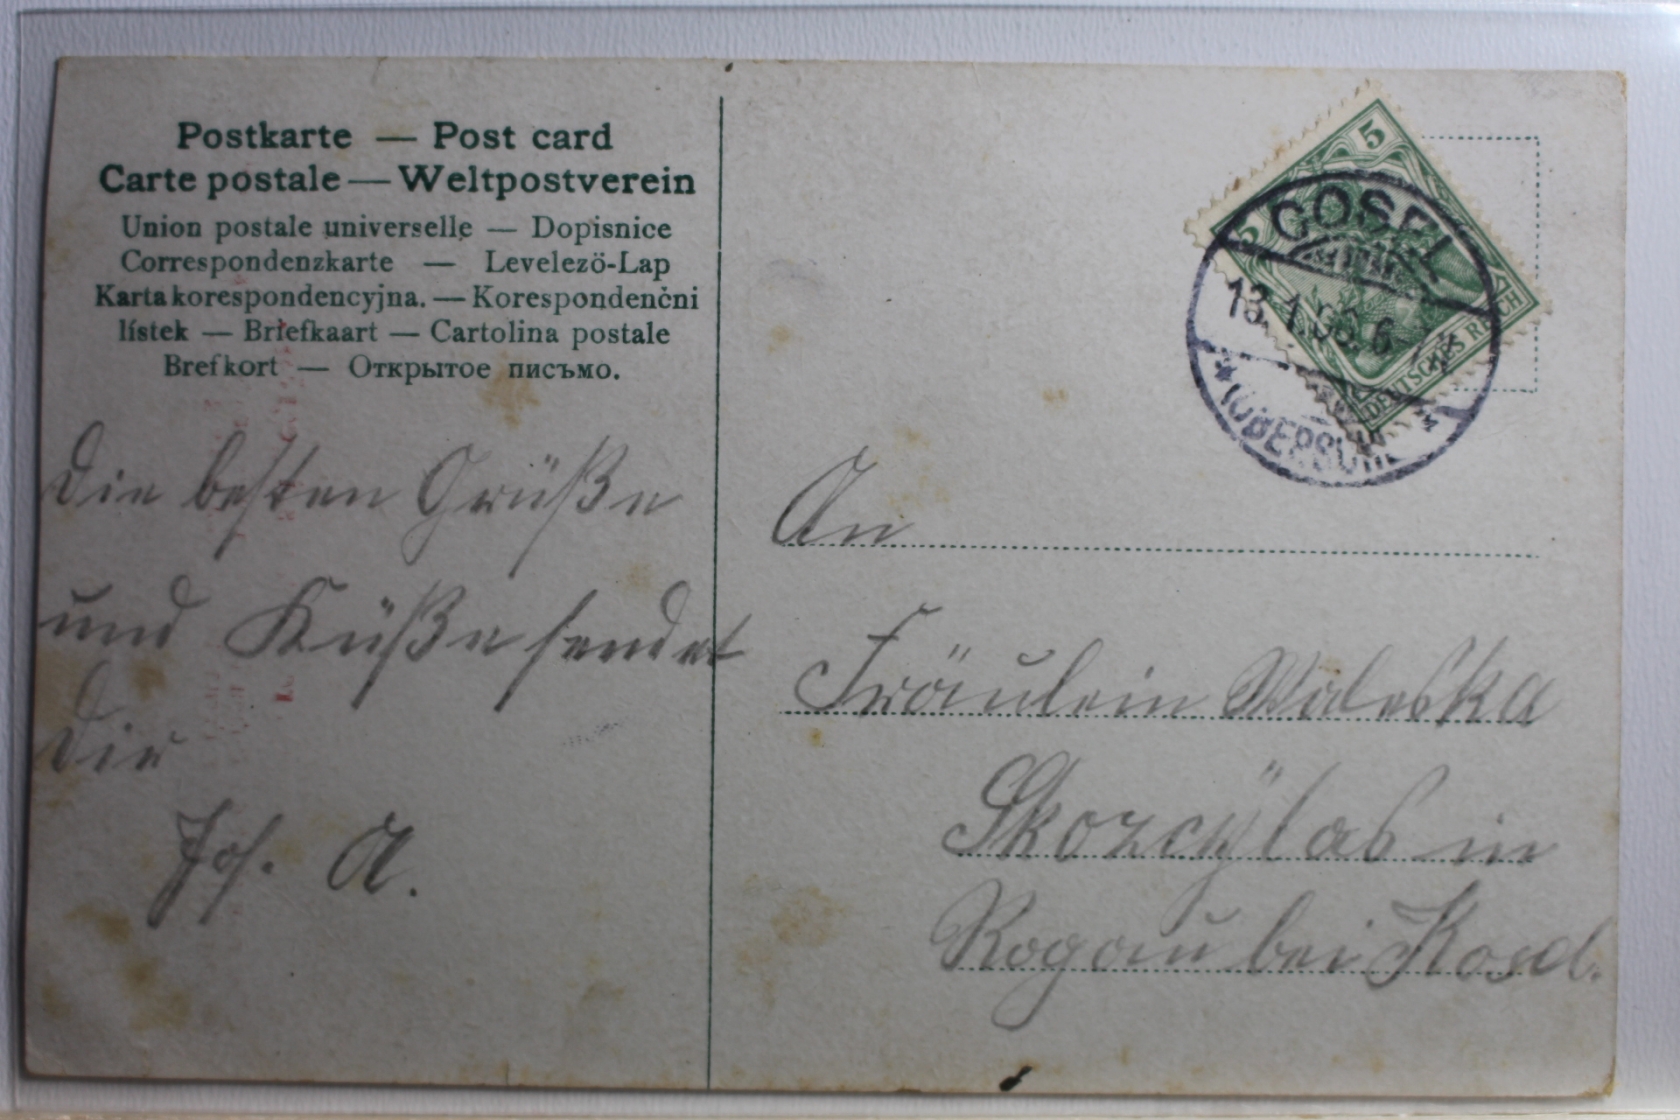 Postkarte — Post card
Carte postale — Weltpostverein
Union postale universelle — Dopisnice
Correspondenzkarte — Levelezö-Lap
Karta korespondencyjna. — Korespondenčni
lístek — Briefkaart — Cartolina postale
Brefkort — Открытое письмо.
Die besten Grüße
und Küße sendet
Dir
Jos. A.
5
5
DEUTSCHES REICH
COSEL
13.1.06.6
(OBERSCHL
An
Fräulein Waleska
Skozcÿlas in
Rogau bei Kosel.